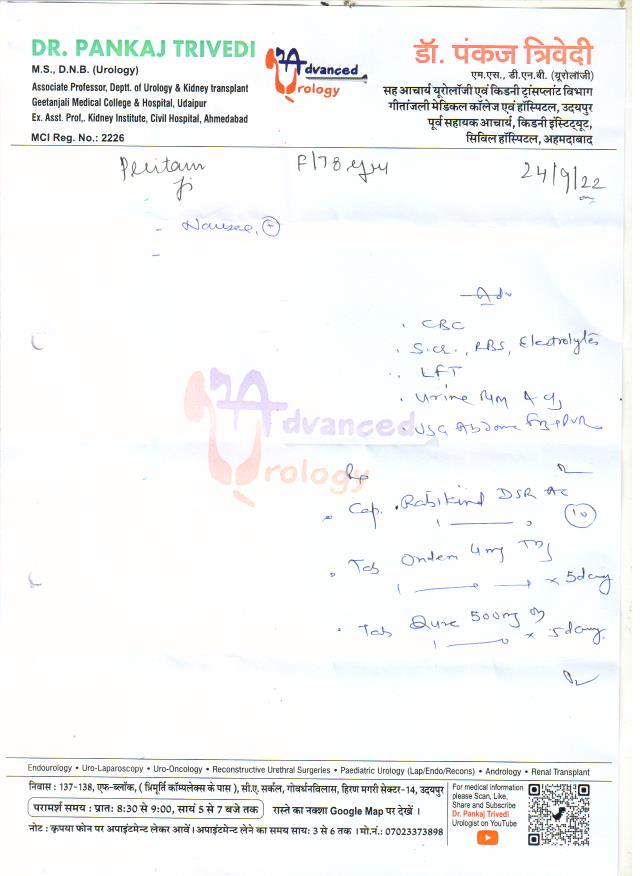 DR. PANKAJ TRIVEDI
M.S., D.N.B. (Urology)
Associate Professor, Deptt. of Urology & Kidney transplant
Geetanjali Medical College & Hospital, Udaipur
Ex. Asst. Prof,. Kidney Institute, Civil Hospital, Ahmedabad
MCI Reg. No.: 2226
Advanced
Urology
डॉ. पंकज त्रिवेदी
एम.एस., डी.एन.बी. (यूरोलॉजी)
सह आचार्य यूरोलॉजी एवं किडनी ट्रांसप्लांट विभाग
गीतांजली मेडिकल कॉलेज एवं हॉस्पिटल, उदयपुर
पूर्व सहायक आचार्य, किडनी इंस्टिट्यूट,
सिविल हॉस्पिटल, अहमदाबाद
F/78 yrs
24/9/22
- Nausea +
Adv
. CBC
. S.cr., RBS, Electrolytes
. LFT
. Urine R/M
. USG Abdome
Advanced
Urology
Rx
. Cap. Rabikind DSR AC
1 0 10
. Tab Ondem 4mg
1 x 5days
. Tab 500mg
1 0 x 5days.
Endourology • Uro-Laparoscopy • Uro-Oncology • Reconstructive Urethral Surgeries • Paediatric Urology (Lap/Endo/Recons) • Andrology • Renal Transplant
निवास : 137-138, एफ-ब्लॉक, ( त्रिमूर्ति कॉम्पलेक्स के पास ), सी.ए. सर्कल, गोवर्धनविलास, हिरण मगरी सेक्टर-14, उदयपुर
परामर्श समय : प्रातः 8:30 से 9:00, सायं 5 से 7 बजे तक रास्ते का नक्शा Google Map पर देखें ।
नोट : कृपया फोन पर अपाइंटमेन्ट लेकर आवें । अपाइंटमेन्ट लेने का समय सायः 3 से 6 तक । मो.नं.: 07023373898
For medical information
please Scan, Like,
Share and Subscribe
Dr. Pankaj Trivedi
Urologist on YouTube